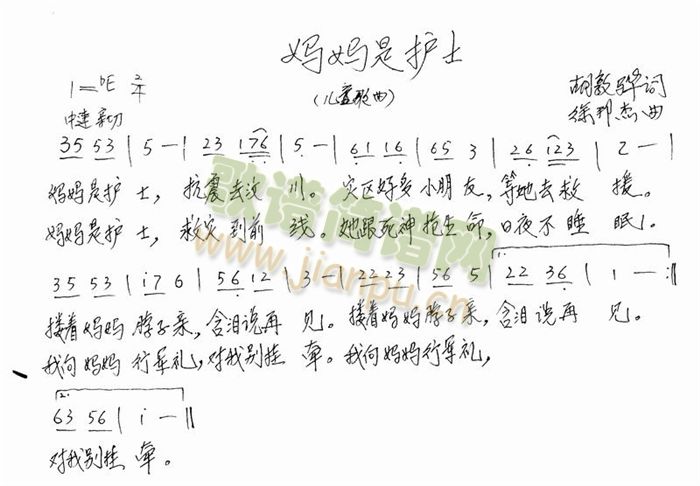 妈妈是护士
(儿童歌曲)
1=bE 2/4
胡敦骅词
中速 亲切
徐邦杰曲
35 53 | 5 - | 23 176 | 5 - | 61 16 | 65 3 | 26 123 | 2 - |
妈妈是护士, 抗震去汶川。灾区好多小朋友,等她去救援。
妈妈是护士, 救灾到前线。她跟死神抢生命,日夜不睡眠。
35 53 | i7 6 | 56 12 | 3 - | 22 23 | 56 5 | 22 36 | 1 - :||
搂着妈妈脖子亲,含泪说再见。搂着妈妈脖子亲,含泪说再见。
我向妈妈行军礼,对我别挂牵。我向妈妈行军礼,
2.
63 56 | i - ||
对我别挂牵。
歌谱简谱网
www.jianpu.cn